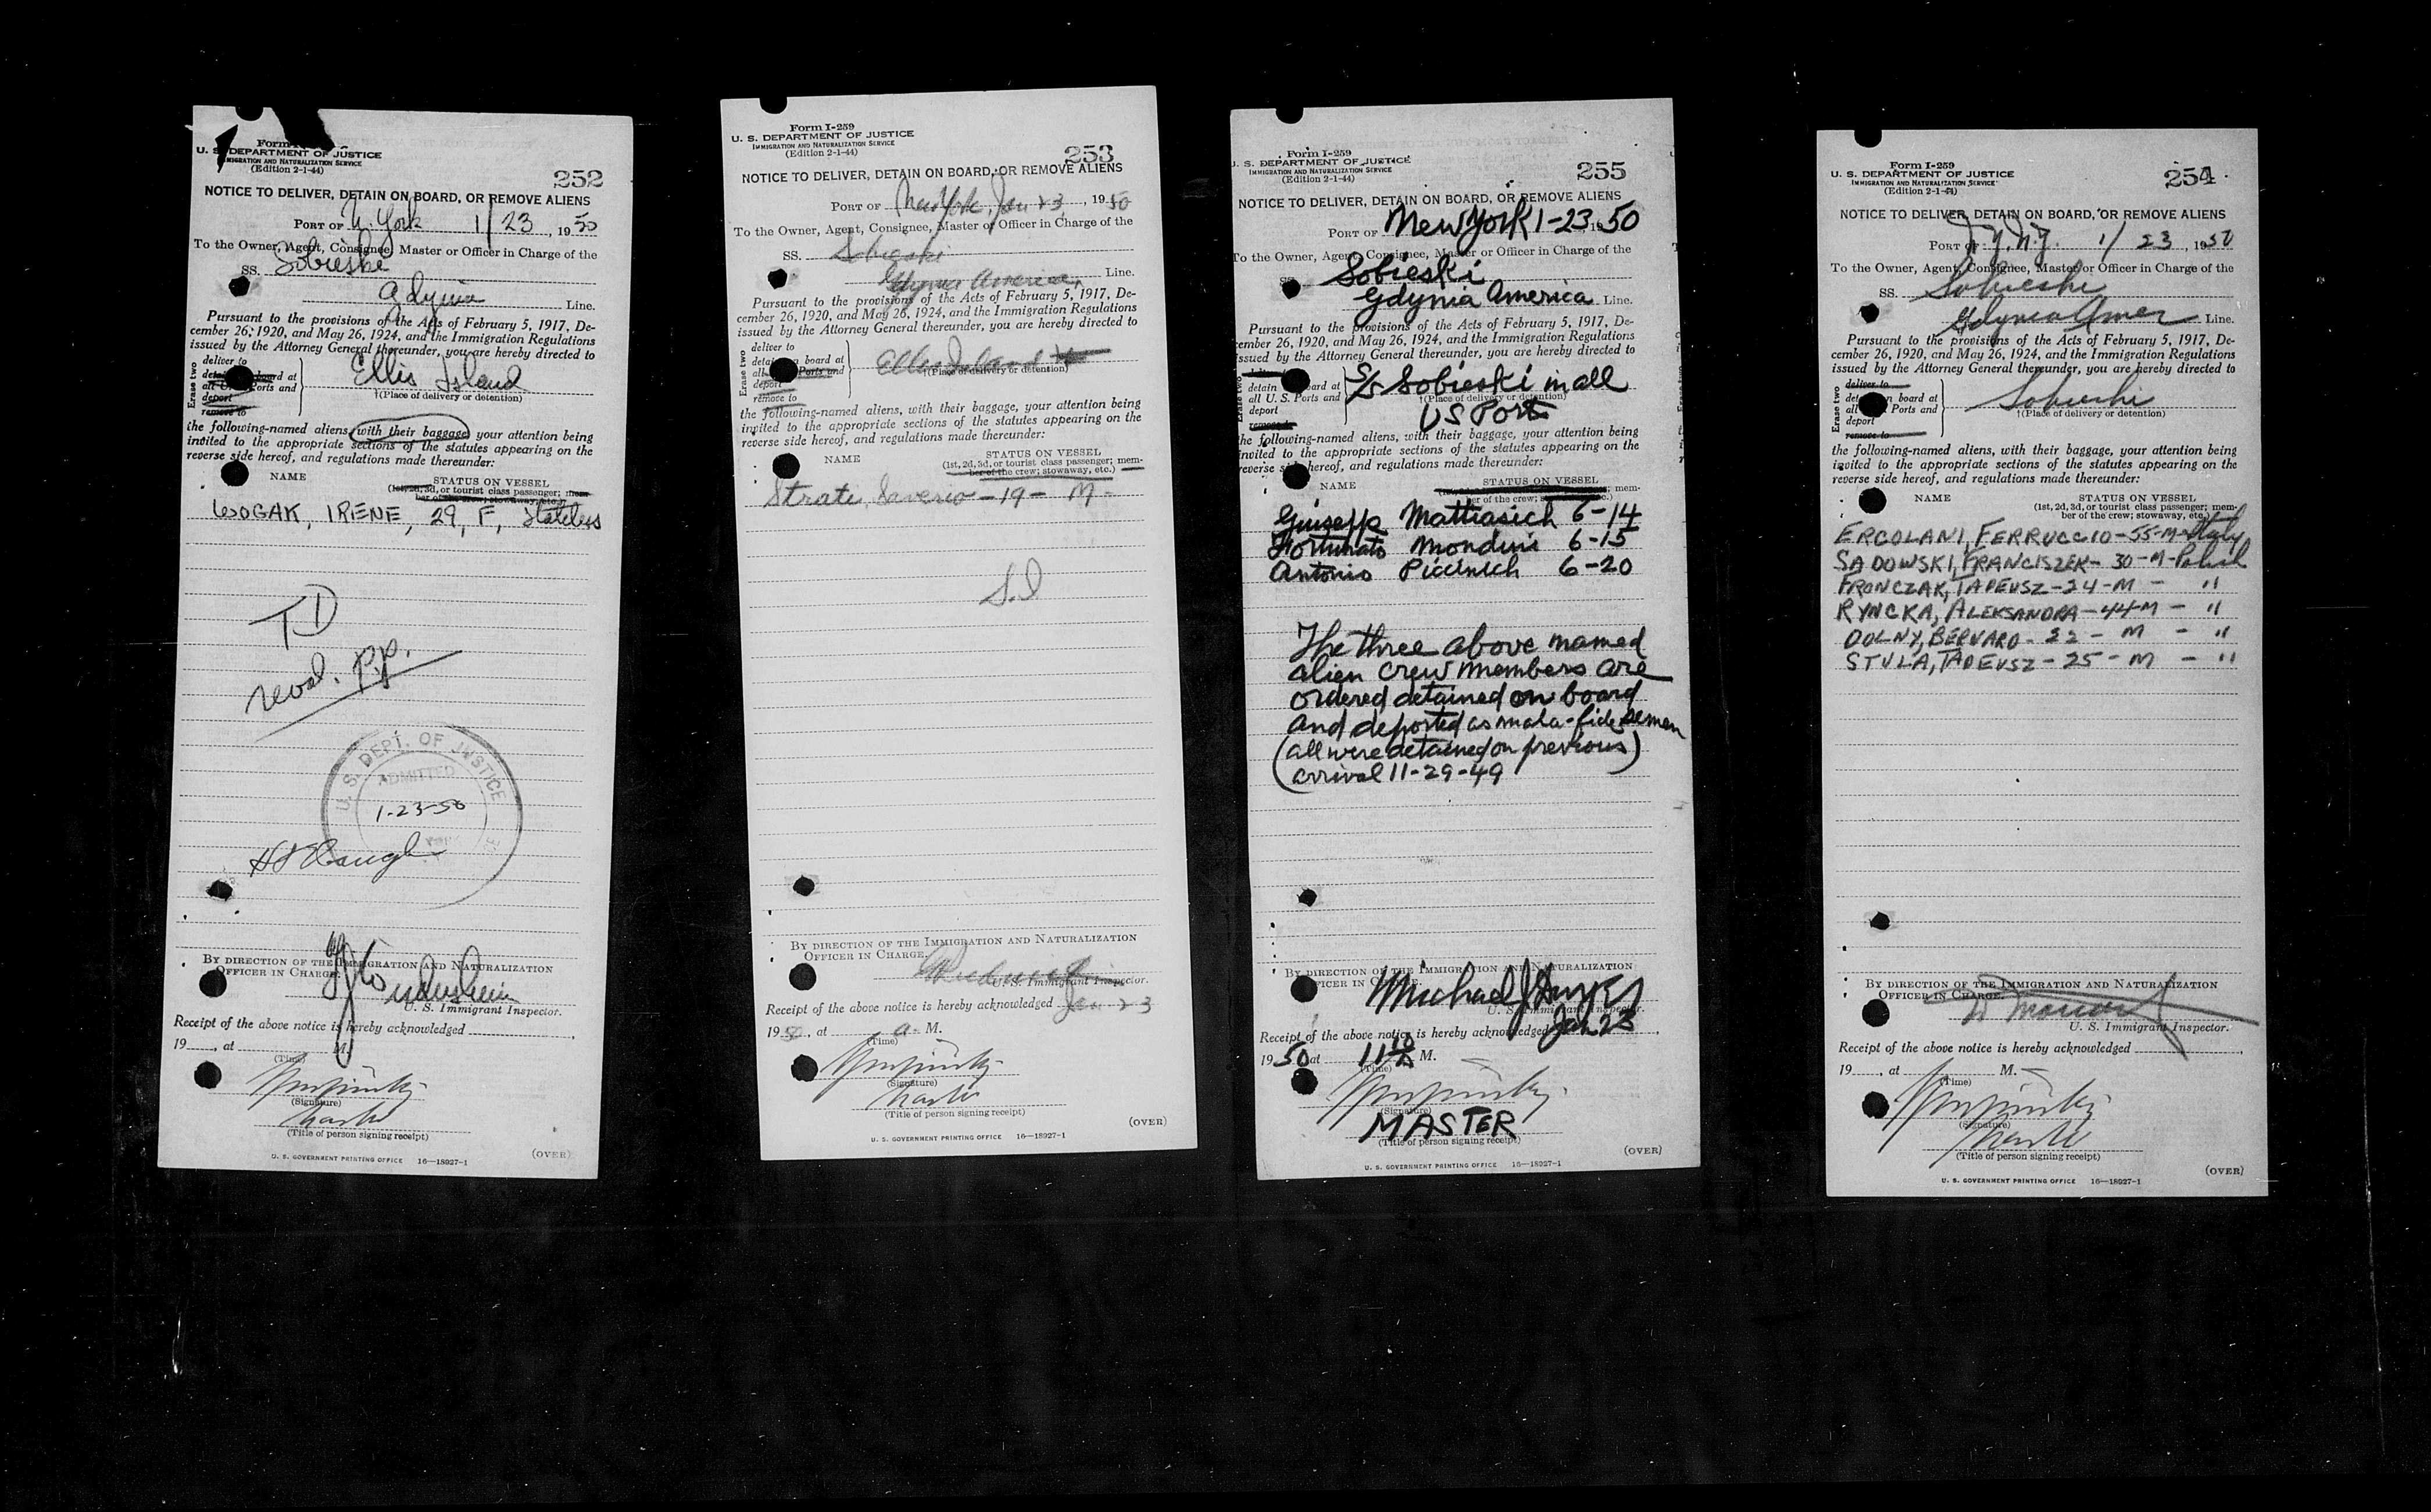 Form
U. S. DEPARTMENT OF JUSTICE
IMMIGRATION AND NATURALIZATION SERVICE
(Edition 2-1-44)
252
NOTICE TO DELIVER, DETAIN ON BOARD, OR REMOVE ALIENS
PORT OF N. York 1/23, 1950
To the Owner, Agent, Consignee, Master or Officer in Charge of the
SS. Sobieski
Gdynia Line.
Pursuant to the provisions of the Acts of February 5, 1917, De-
cember 26, 1920, and May 26, 1924, and the Immigration Regulations
issued by the Attorney General thereunder, you are hereby directed to
Erase two
deliver to
detain on board at
all U. S. Ports and
deport
remove to
Ellis Island
†(Place of delivery or detention)
the following-named aliens, with their baggage, your attention being
invited to the appropriate sections of the statutes appearing on the
reverse side hereof, and regulations made thereunder:
NAME
STATUS ON VESSEL
(1st, 2d, 3d, or tourist class passenger; mem-
ber of the crew; stowaway, etc.)
WOGAK, IRENE, 29, F, Stateless
TD
reval. p.p.
U. S. DEPT. OF JUSTICE
ADMITTED
1-23-50
BY DIRECTION OF THE IMMIGRATION AND NATURALIZATION
OFFICER IN CHARGE.
U. S. Immigrant Inspector.
Receipt of the above notice is hereby acknowledged
19 , at M.
(Time)
(Signature)
Master
(Title of person signing receipt)
U. S. GOVERNMENT PRINTING OFFICE 16—18927-1
(OVER)
Form I-259
U. S. DEPARTMENT OF JUSTICE
IMMIGRATION AND NATURALIZATION SERVICE
(Edition 2-1-44)
253
NOTICE TO DELIVER, DETAIN ON BOARD, OR REMOVE ALIENS
PORT OF New York, Jan 23, 1950
To the Owner, Agent, Consignee, Master or Officer in Charge of the
SS. Sobieski
Gdynia America Line.
Pursuant to the provisions of the Acts of February 5, 1917, De-
cember 26, 1920, and May 26, 1924, and the Immigration Regulations
issued by the Attorney General thereunder, you are hereby directed to
Erase two
deliver to
detain on board at
all U. S. Ports and
deport
remove to
Ellis Island
†(Place of delivery or detention)
the following-named aliens, with their baggage, your attention being
invited to the appropriate sections of the statutes appearing on the
reverse side hereof, and regulations made thereunder:
NAME
STATUS ON VESSEL
(1st, 2d, 3d, or tourist class passenger; mem-
ber of the crew; stowaway, etc.)
Strati, Saverio - 19 - M -
S.I
BY DIRECTION OF THE IMMIGRATION AND NATURALIZATION
OFFICER IN CHARGE.
U. S. Immigrant Inspector.
Receipt of the above notice is hereby acknowledged Jan 23
1950, at a. M.
(Time)
(Signature)
Master
(Title of person signing receipt)
(OVER)
U. S. GOVERNMENT PRINTING OFFICE 16—18927-1
Form I-259
U. S. DEPARTMENT OF JUSTICE
IMMIGRATION AND NATURALIZATION SERVICE
(Edition 2-1-44)
255
NOTICE TO DELIVER, DETAIN ON BOARD, OR REMOVE ALIENS
PORT OF New York 1-23, 1950
To the Owner, Agent, Consignee, Master or Officer in Charge of the
SS. Sobieski
Gdynia America Line.
Pursuant to the provisions of the Acts of February 5, 1917, De-
cember 26, 1920, and May 26, 1924, and the Immigration Regulations
issued by the Attorney General thereunder, you are hereby directed to
Erase two
deliver to
detain on board at
all U. S. Ports and
deport
remove to
S/S Sobieski in all
†(Place of delivery or detention)
US Ports
the following-named aliens, with their baggage, your attention being
invited to the appropriate sections of the statutes appearing on the
reverse side hereof, and regulations made thereunder:
NAME
STATUS ON VESSEL
mem-
ber of the crew;
Giuseppe Mattiasich 6-14
Fortunato Mondini 6-15
Antonio Picinich 6-20
The three above named
alien crew members are
ordered detained on board
and deported as mala-fide seamen
(all were detained on previous)
arrival 11-29-49
BY DIRECTION OF THE IMMIGRATION AND NATURALIZATION
OFFICER IN CHARGE.
Michael J
U. S. Immigrant Inspector.
Receipt of the above notice is hereby acknowledged Jan 23,
1950 at 11 10 A M.
(Time)
(Signature)
MASTER
(Title of person signing receipt)
(OVER)
U. S. GOVERNMENT PRINTING OFFICE 16—18927-1
Form I-259
U. S. DEPARTMENT OF JUSTICE
IMMIGRATION AND NATURALIZATION SERVICE
(Edition 2-1-44)
254
NOTICE TO DELIVER, DETAIN ON BOARD, OR REMOVE ALIENS
PORT OF N.Y. N.Y. 1/23, 1950
To the Owner, Agent, Consignee, Master or Officer in Charge of the
SS. Sobieski
Gdynia Amer Line.
Pursuant to the provisions of the Acts of February 5, 1917, De-
cember 26, 1920, and May 26, 1924, and the Immigration Regulations
issued by the Attorney General thereunder, you are hereby directed to
Erase two
deliver to
detain on board at
all U. S. Ports and
deport
remove to
Sobieski
†(Place of delivery or detention)
the following-named aliens, with their baggage, your attention being
invited to the appropriate sections of the statutes appearing on the
reverse side hereof, and regulations made thereunder:
NAME
STATUS ON VESSEL
(1st, 2d, 3d, or tourist class passenger; mem-
ber of the crew; stowaway, etc.)
ERCOLANI, FERRUCCIO - 55 - M - Italy
SADOWSKI, FRANCISZEK - 30 - M - Polish
FRONCZAK, TADEUSZ - 24 - M - "
RYNCKA, ALEKSANDRA - 44 - M - "
DOLNY, BERNARD - 22 - M - "
STULA, TADEUSZ - 25 - M - "
BY DIRECTION OF THE IMMIGRATION AND NATURALIZATION
OFFICER IN CHARGE.
U. S. Immigrant Inspector.
Receipt of the above notice is hereby acknowledged
19 , at M.
(Time)
(Signature)
Master
(Title of person signing receipt)
(OVER)
U. S. GOVERNMENT PRINTING OFFICE 16—18927-1